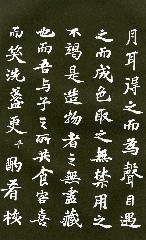 月耳得之而為聲目遇
之而成色取之無禁用之
不竭是造物者之無盡藏
也而吾與子之所共食客喜
而笑洗盞更酌肴核